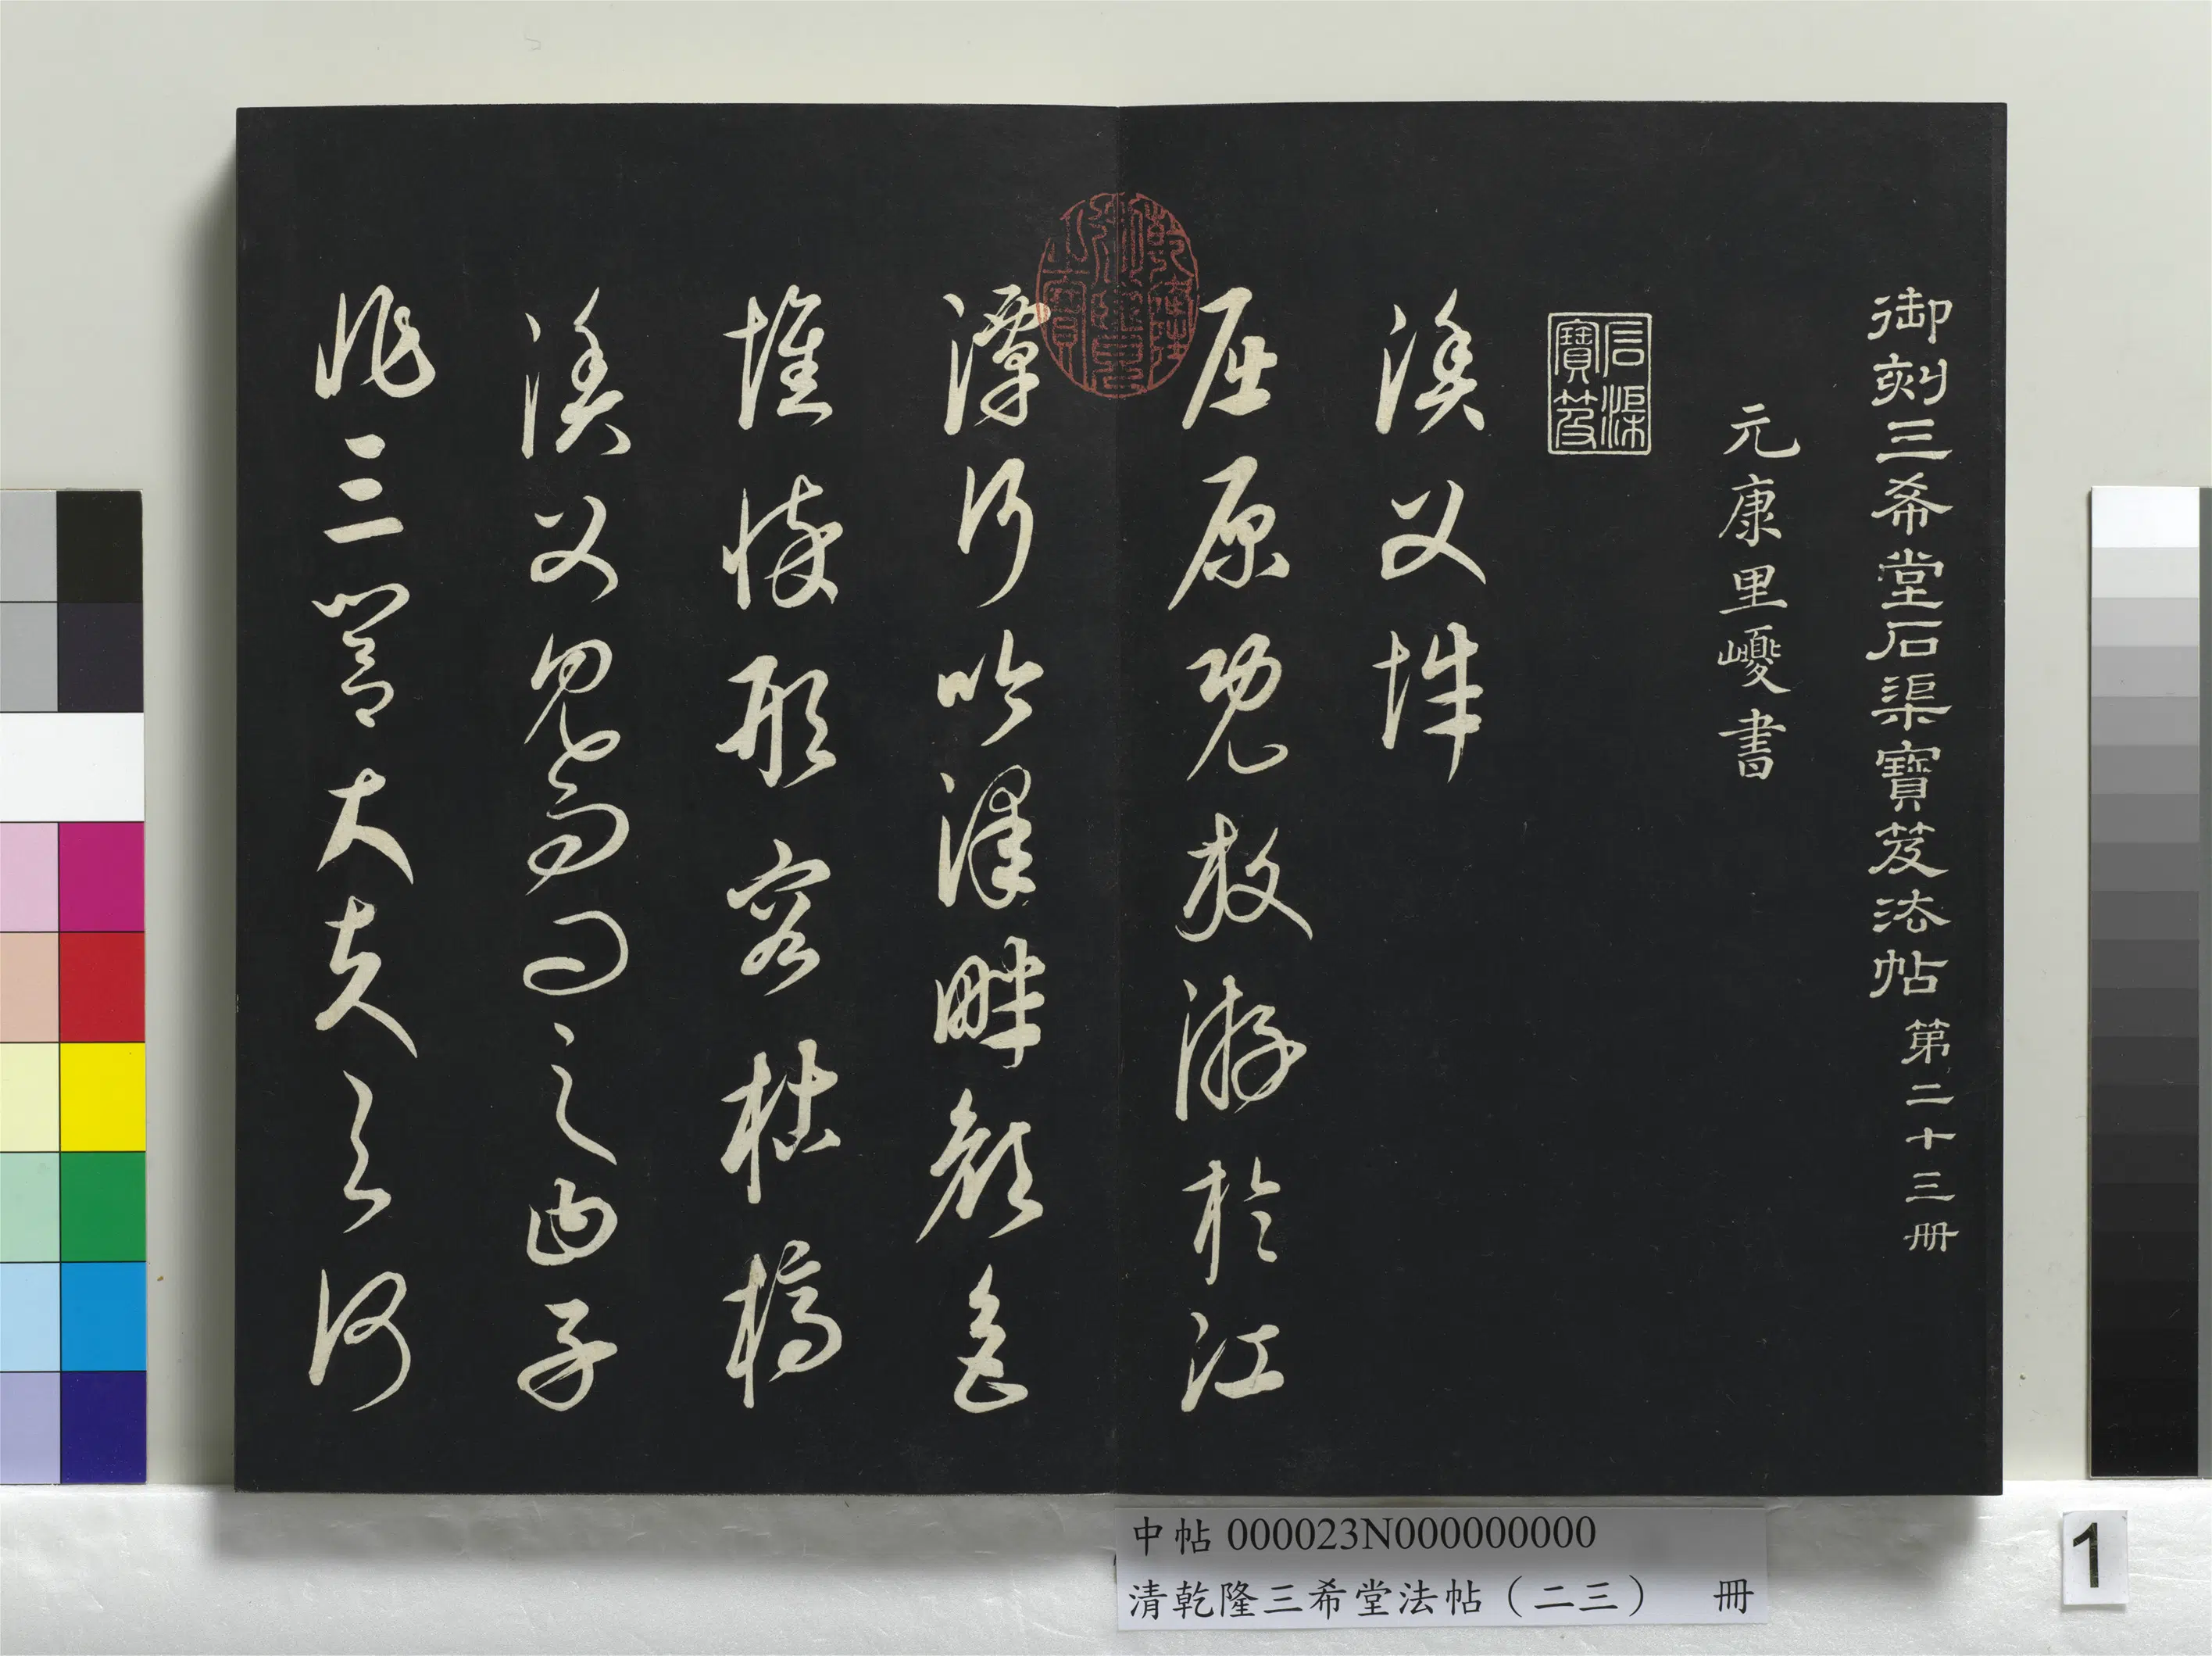 御刻三希堂石渠寶笈法帖 第二十三冊
元康里巎書
石渠寶笈
漁父辭
屈原既放游於江
乾隆御覽之寶
潭行吟澤畔顏色
憔悴形容枯槁
漁父見而問之曰子
非三閭大夫與何
中帖 000023N000000000
清乾隆三希堂法帖（二三） 冊
1